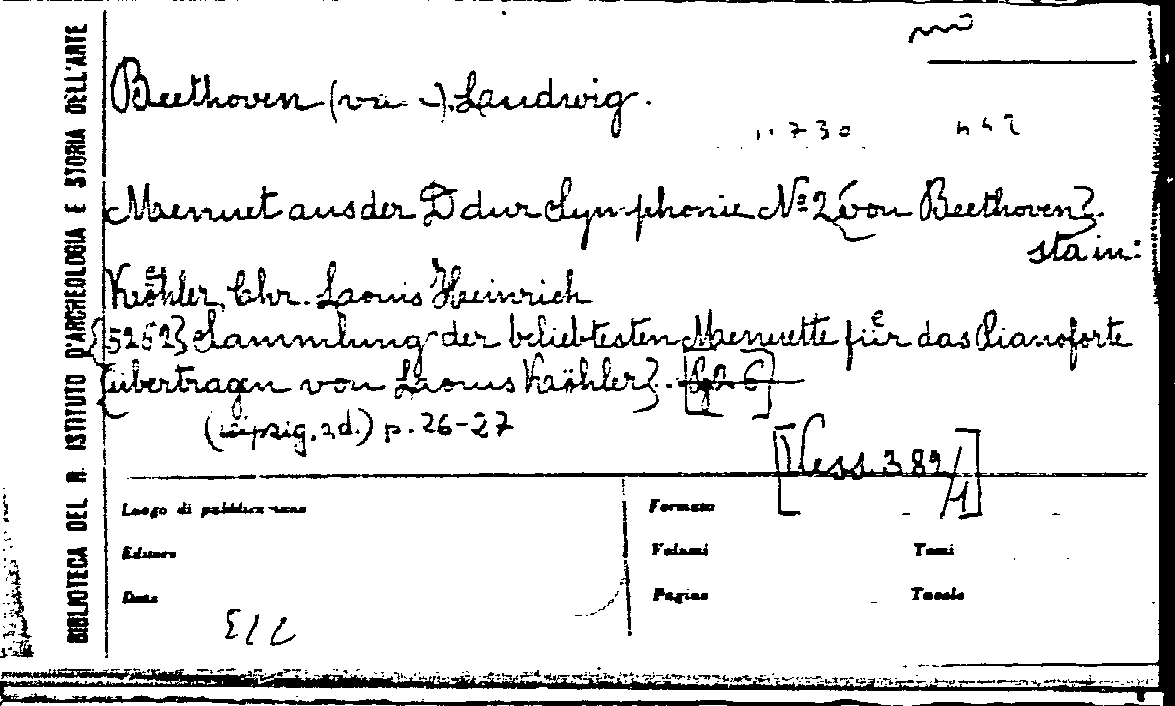 BIBLIOTECA DEL R. ISTITUTO D'ARCHEOLOGIA E STORIA DELL'ARTE
Beethoven (van -), Laudwig.
Maenuet aus der D dur Symphonie Nº 2 {von Beethoven}.
sta in:
Köhler, Chr. Laouis Heinrich
{5262} Sammlung der beliebtesten Maenuette für das Pianoforte
{übertragen von Laouis Köhler}.
(Leipzig, s.d.) p. 26-27
[Vess. 389/1]
Luogo di pubblicazione
Formato
Editore
Volumi
Tomi
Data
Pagine
Tavole